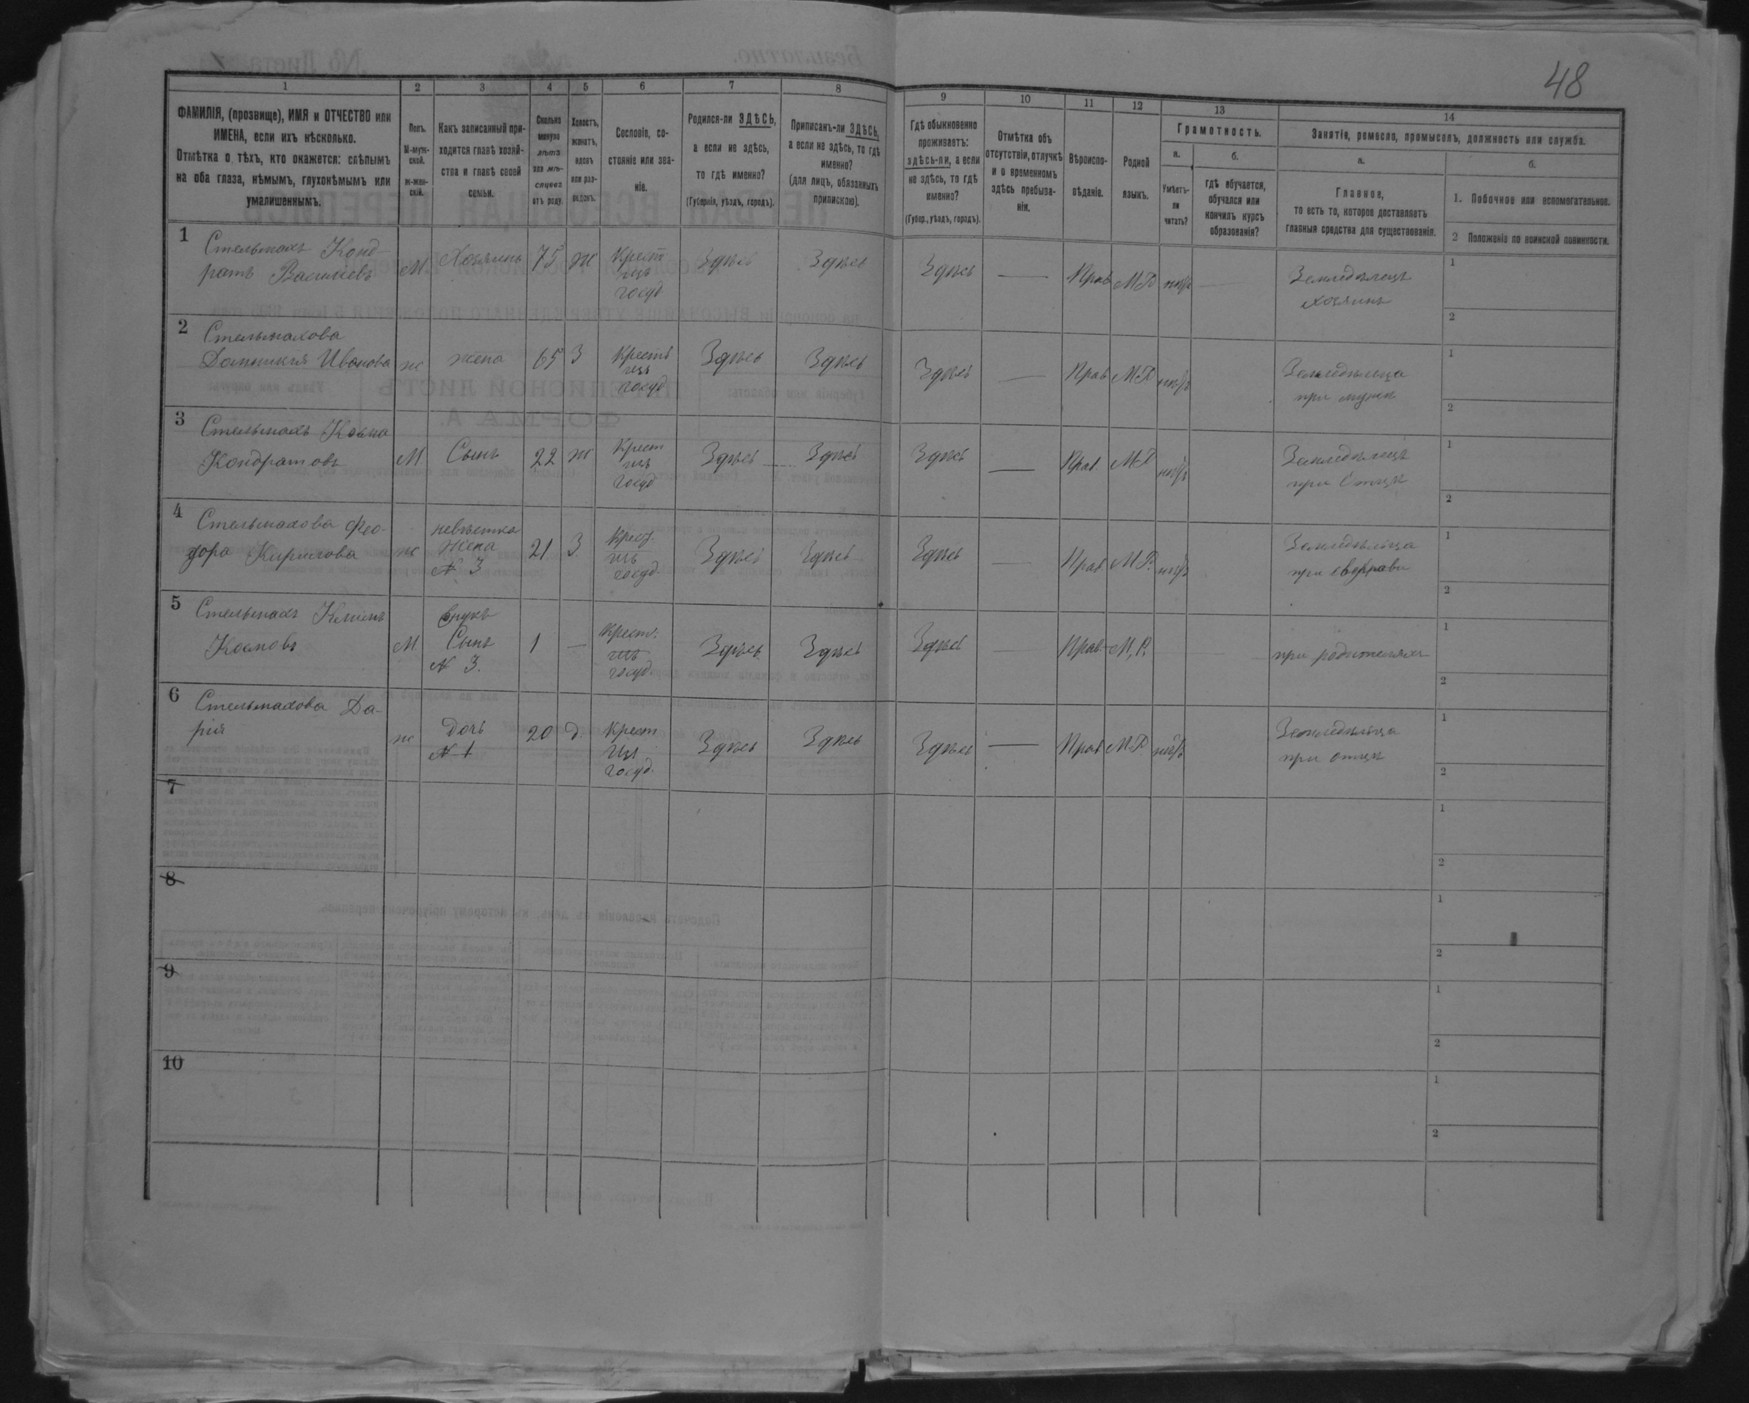 48
1 2 3 4 5 6 7 8 9 10 11 12 13 14
ФАМИЛІЯ, (прозвище), ИМЯ и ОТЧЕСТВО или
ИМЕНА, если ихъ нѣсколько.
Отмѣтка о тѣхъ, кто окажется: слѣпымъ
на оба глаза, нѣмымъ, глухонѣмымъ или
умалишеннымъ.
Полъ.
М-муж-
ской.
ж-жен-
скій.
Какъ записанный при-
ходится главѣ хозяй-
ства и главѣ своей
семьи.
Сколько
минуло
лѣтъ
или мѣ-
сяцевъ
отъ роду.
Холостъ,
женатъ,
вдовъ
или раз-
веденъ.
Сословіе, со-
стояніе или зва-
ніе.
Родился-ли ЗДѢСЬ,
а если не здѣсь,
то гдѣ именно?
(Губернія, уѣздъ, городъ).
Приписанъ-ли ЗДѢСЬ,
а если не здѣсь, то гдѣ
именно?
(для лицъ, обязанныхъ
припискою).
Гдѣ обыкновенно
проживаетъ:
здѣсь-ли, а если
не здѣсь, то гдѣ
именно?
(Губер., уѣздъ, городъ).
Отмѣтка объ
отсутствіи, отлучкѣ
и о временномъ
здѣсь пребыва-
ніи.
Вѣроиспо-
вѣданіе.
Родной
языкъ.
Грамотность.
а.
Умѣетъ-
ли
читать?
б.
гдѣ обучается,
обучался или
кончилъ курсъ
образованія?
Занятія, ремесло, промыселъ, должность или служба.
а.
Главное,
то есть то, которое доставляетъ
главныя средства для существованія.
б.
1. Побочное или вспомогательное.
2 Положеніе по воинской повинности.
1 Стельмахъ Конд-
ратъ Васильевъ
М Хозяинъ 75 ж
Крест
изъ
госуд
Здѣсь Здѣсь Здѣсь — Прав М.Р. нѣтъ —
Земледѣлецъ
хозяинъ
1
2
2 Стельмахова
Домникія Иванова
ж жена 65 З
Крестъ
изъ
госуд
Здѣсь Здѣсь Здѣсь — Прав М.Р нѣтъ
Земледѣлица
при мужѣ
1
2
3 Стельмахъ Козма
Кондратовъ
М Сынъ 22 ж
Крест
изъ
госуд
Здѣсь Здѣсь Здѣсь — Прав М.Р нѣтъ
Земледѣлецъ
при Отцѣ
1
2
4 Стельмахова Фео-
дора Кирилова
ж
невѣстка
Жена
№ 3
21 З.
Крест.
изъ
госуд
Здѣсь Здѣсь Здѣсь — Прав М.Р. нѣтъ
Земледѣлица
при
1
2
5 Стельмахъ
Козмовъ
М
Внукъ
Сынъ
№ 3.
1 —
Крест.
изъ
госуд.
Здѣсь Здѣсь Здѣсь — Прав М.Р. — —
при родителяхъ
1
2
6 Стельмахова Да-
рія
ж
дочь
№ 1
20 д.
Крест
изъ
госуд.
Здѣсь Здѣсь Здѣсь — Прав М.Р. нѣтъ
Земледѣлица
при отцѣ
1
2
7
1
2
8
1
2
9
1
2
10
1
2